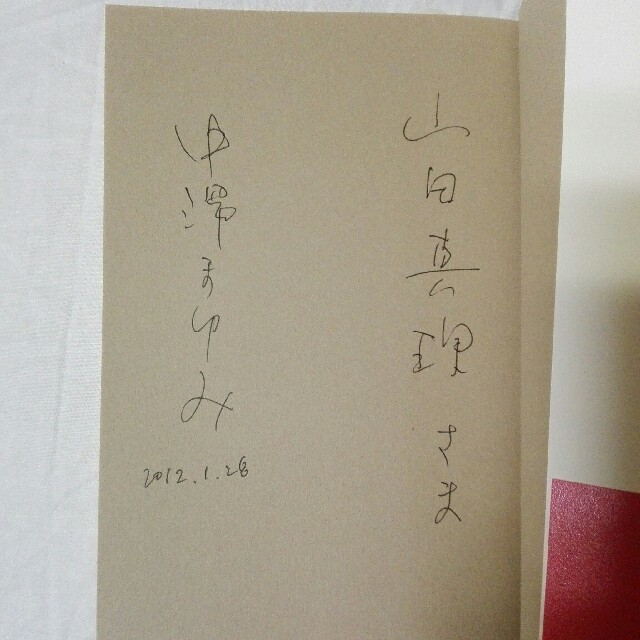 山田真理さま
中澤まゆみ
2012.1.28